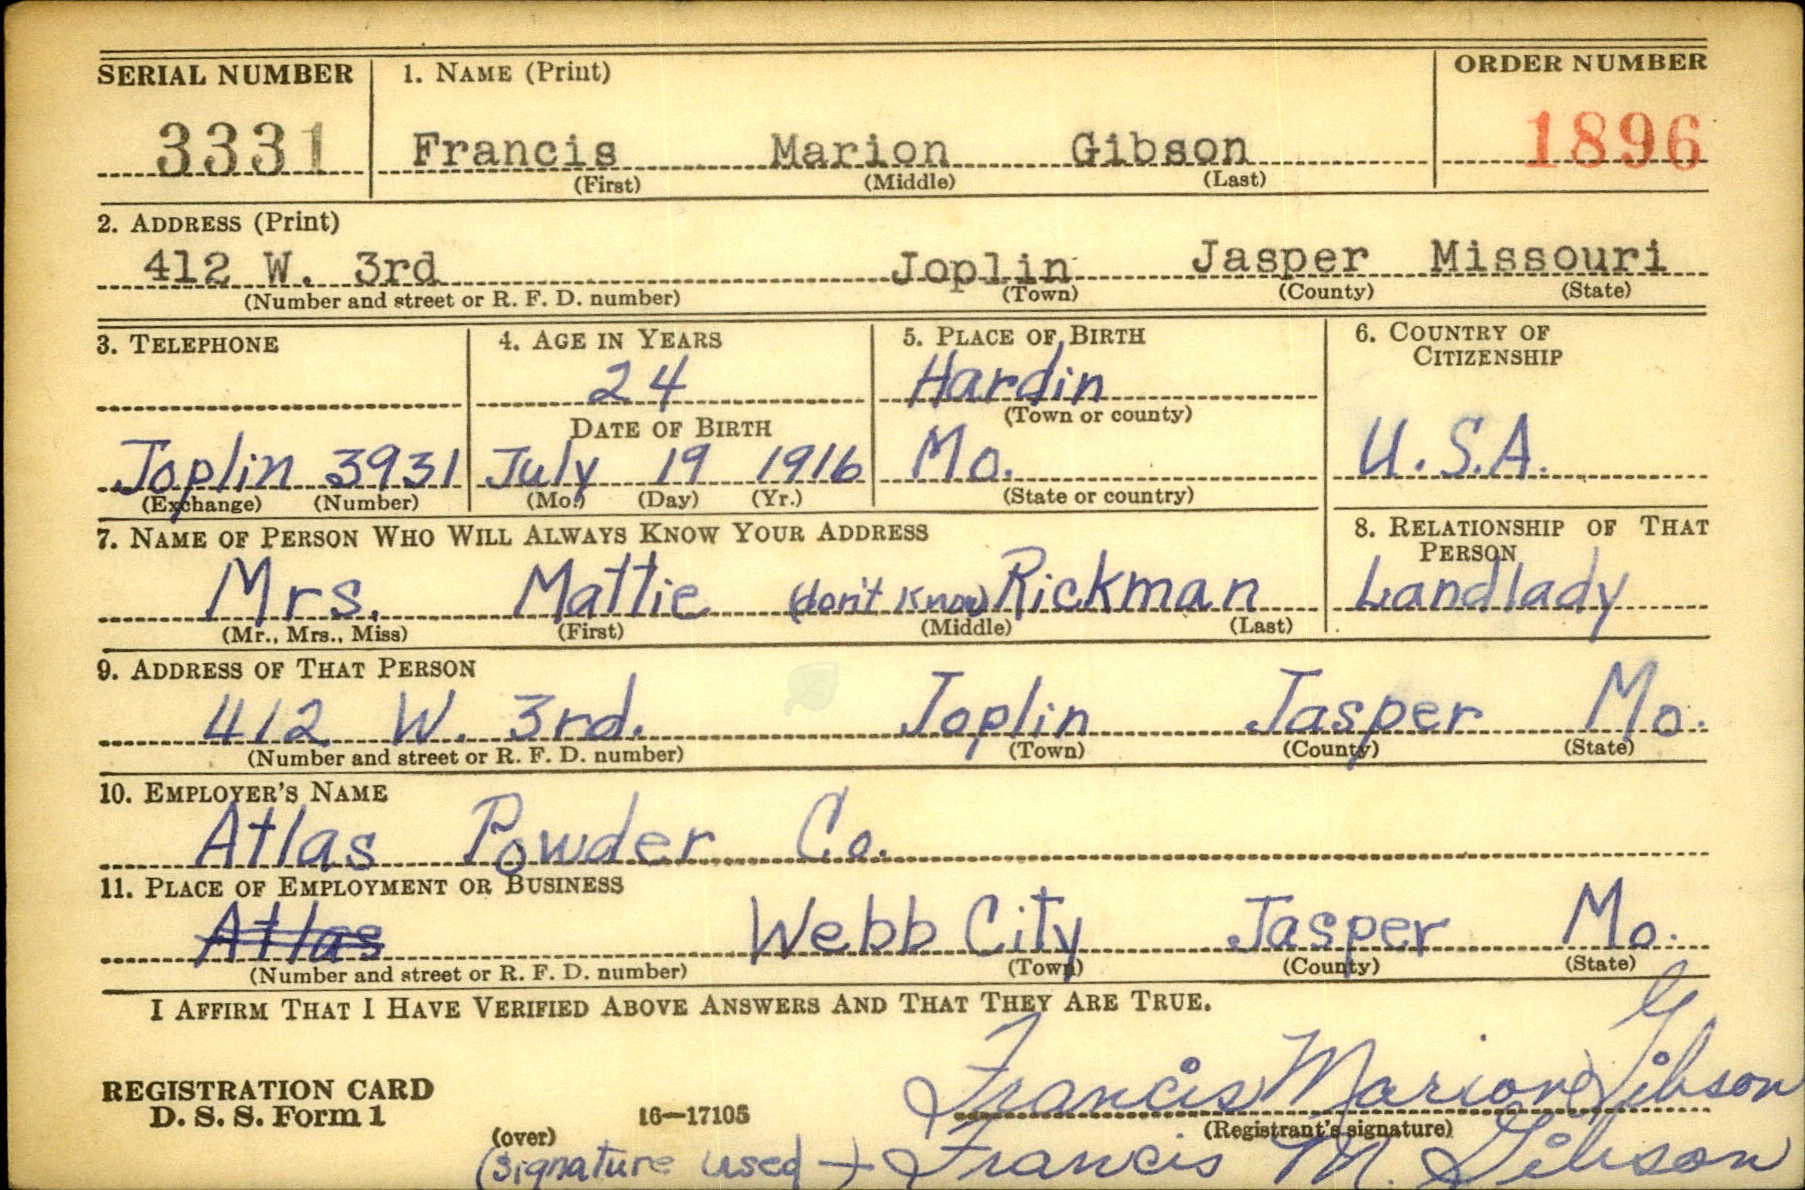 SERIAL NUMBER 1. NAME (Print) ORDER NUMBER
3331 Francis Marion Gibson 1896
(First) (Middle) (Last)
2. ADDRESS (Print)
412 W. 3rd Joplin Jasper Missouri
(Number and street or R. F. D. number) (Town) (County) (State)
3. TELEPHONE 4. AGE IN YEARS 5. PLACE OF BIRTH 6. COUNTRY OF CITIZENSHIP
24 Hardin
DATE OF BIRTH (Town or county)
Joplin 3931 July 19 1916 Mo. U.S.A.
(Exchange) (Number) (Mo.) (Day) (Yr.) (State or country)
7. NAME OF PERSON WHO WILL ALWAYS KNOW YOUR ADDRESS 8. RELATIONSHIP OF THAT PERSON
Mrs. Mattie (don't know) Rickman Landlady
(Mr., Mrs., Miss) (First) (Middle) (Last)
9. ADDRESS OF THAT PERSON
412 W. 3rd. Joplin Jasper Mo.
(Number and street or R. F. D. number) (Town) (County) (State)
10. EMPLOYER'S NAME
Atlas Powder Co.
11. PLACE OF EMPLOYMENT OR BUSINESS
Atlas Webb City Jasper Mo.
(Number and street or R. F. D. number) (Town) (County) (State)
I AFFIRM THAT I HAVE VERIFIED ABOVE ANSWERS AND THAT THEY ARE TRUE.
REGISTRATION CARD Francis Marion Gibson
D. S. S. Form 1 16—17105 (Registrant's signature)
(over)
(signature used → Francis M. Gibson